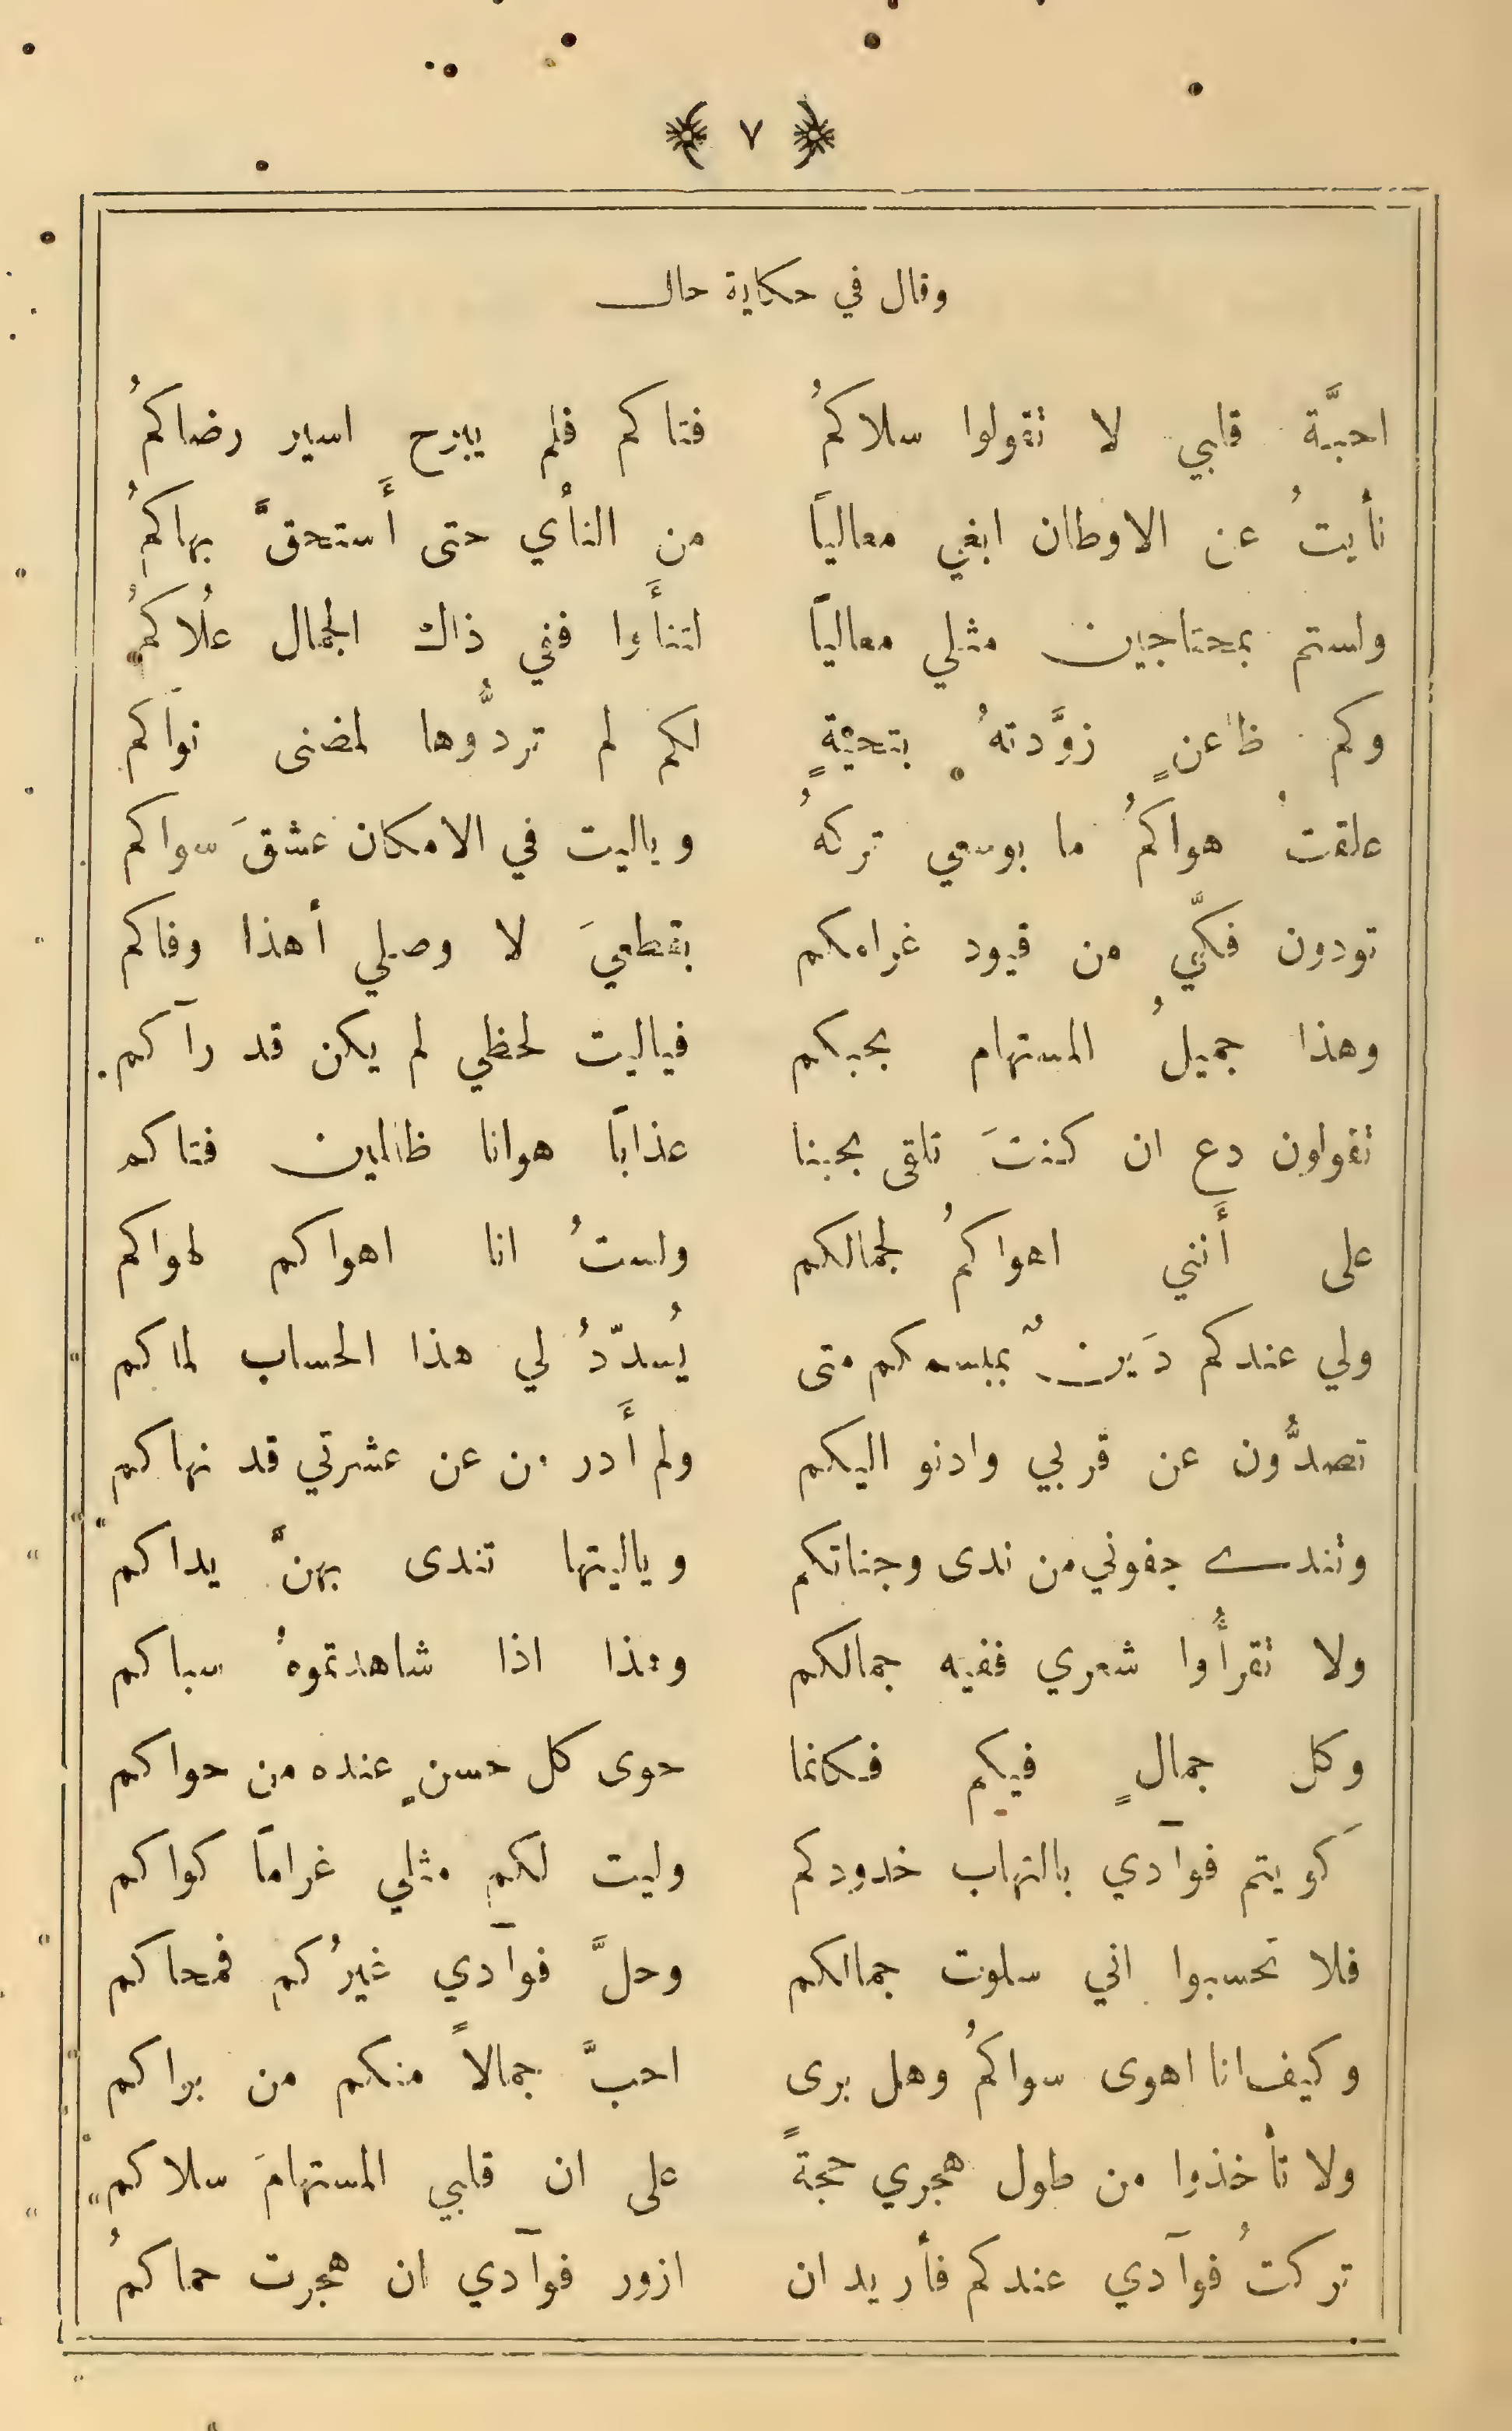 ﴿ ٧ ﴾
وقال في حكاية حال
احبَّة قلبي لا تقولوا سلاكمُ فتاكم فلم يبرح اسير رضاكمُ
نأيتُ عن الاوطان ابغي معالياً من النأي حتى أَستحقَّ بهاكمُ
ولستم بمحتاجين مثلي معالياً لتنأَوا ففي ذاك الجمال عُلاكمُ
وكم ظاعنٍ زوَّدتهُ بتحيَّةٍ لكم لم تردُّوها لمضنى نواكم
علقتُ هواكمُ ما بوسعي تركهُ وياليت في الامكان عشقَ سواكم
تودون فكّي من قيود غرامكم بقطعيَ لا وصلي أهذا وفاكم
وهذا جميلُ المستهام بحبكم فياليت لحظي لم يكن قد رآكم
تقولون دع ان كنتَ تلقى بحبنا عذاباً هوانا ظالمين فتاكم
على أَنني اهواكمُ لجمالكم ولستُ انا اهواكم لهواكم
ولي عندكم دَينٌ بمبسمكم متى يُسدّدُ لي هذا الحساب لماكم
تصدُّون عن قربي وادنو اليكم ولم أَدر من عن عشرتي قد نهاكم
وتندى جفوني من ندى وجناتكم وياليتها تندى بهنَّ يداكم
ولا تقرأُوا شعري ففيه جمالكم وهذا اذا شاهدتموهُ سباكم
وكل جمالٍ فيكم فكانما حوى كل حسنٍ عنده من حواكم
كَويتم فوآدي بالتهاب خدودكم وليت لكم مثلي غراماً كواكم
فلا تحسبوا اني سلوت جمالكم وحلَّ فوآدي غيرُكم فمحاكم
وكيف انا اهوى سواكمُ وهل يرى احبَّ جمالاً منكم من يراكم
ولا تأخذوا من طول هجري حجةً على ان قلبي المستهامَ سلاكم
تركتُ فوآدي عندكم فأريد ان ازور فوآدي ان هجرت حماكمُ